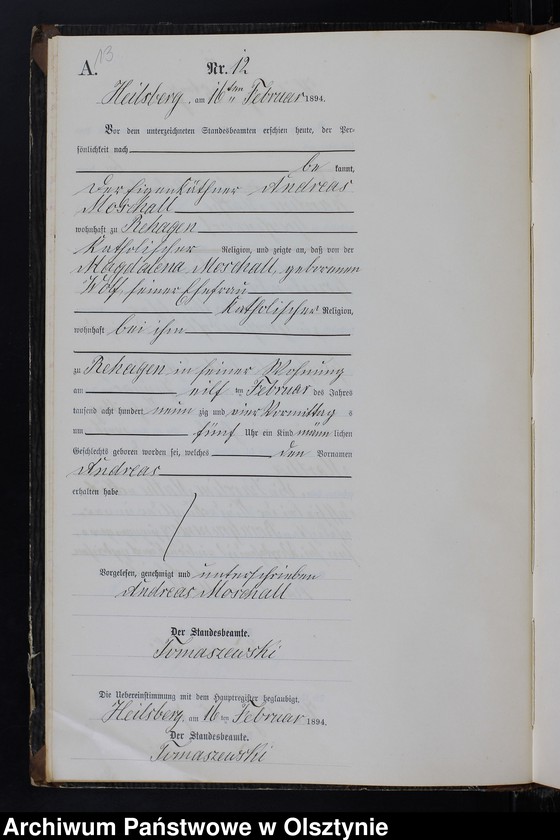 13
A.
Nr. 12
Heilsberg, am 16 ten Februar 1894.
Vor dem unterzeichneten Standesbeamten erschien heute, der Per-
sönlichkeit nach
be kannt,
der Eigenkäthner Andreas
Morchall
wohnhaft zu Rehagen
katholischer Religion, und zeigte an, daß von der
Magdalena Morchall, geborenen
Wolf, seiner Ehefrau
katholischer Religion,
wohnhaft bei ihm
zu Rehagen in seiner Wohnung
am eilf ten Februar des Jahres
tausend acht hundert neun zig und vier Vormittag s
um fünf Uhr ein Kind männ lichen
Geschlechts geboren worden sei, welches den Vornamen
Andreas
erhalten habe
Vorgelesen, genehmigt und unterschrieben
Andreas Morchall
Der Standesbeamte.
Tomaszewski
Die Uebereinstimmung mit dem Hauptregister beglaubigt.
Heilsberg, am 16 ten Februar 1894.
Der Standesbeamte.
Tomaszewski
Archiwum Państwowe w Olsztynie